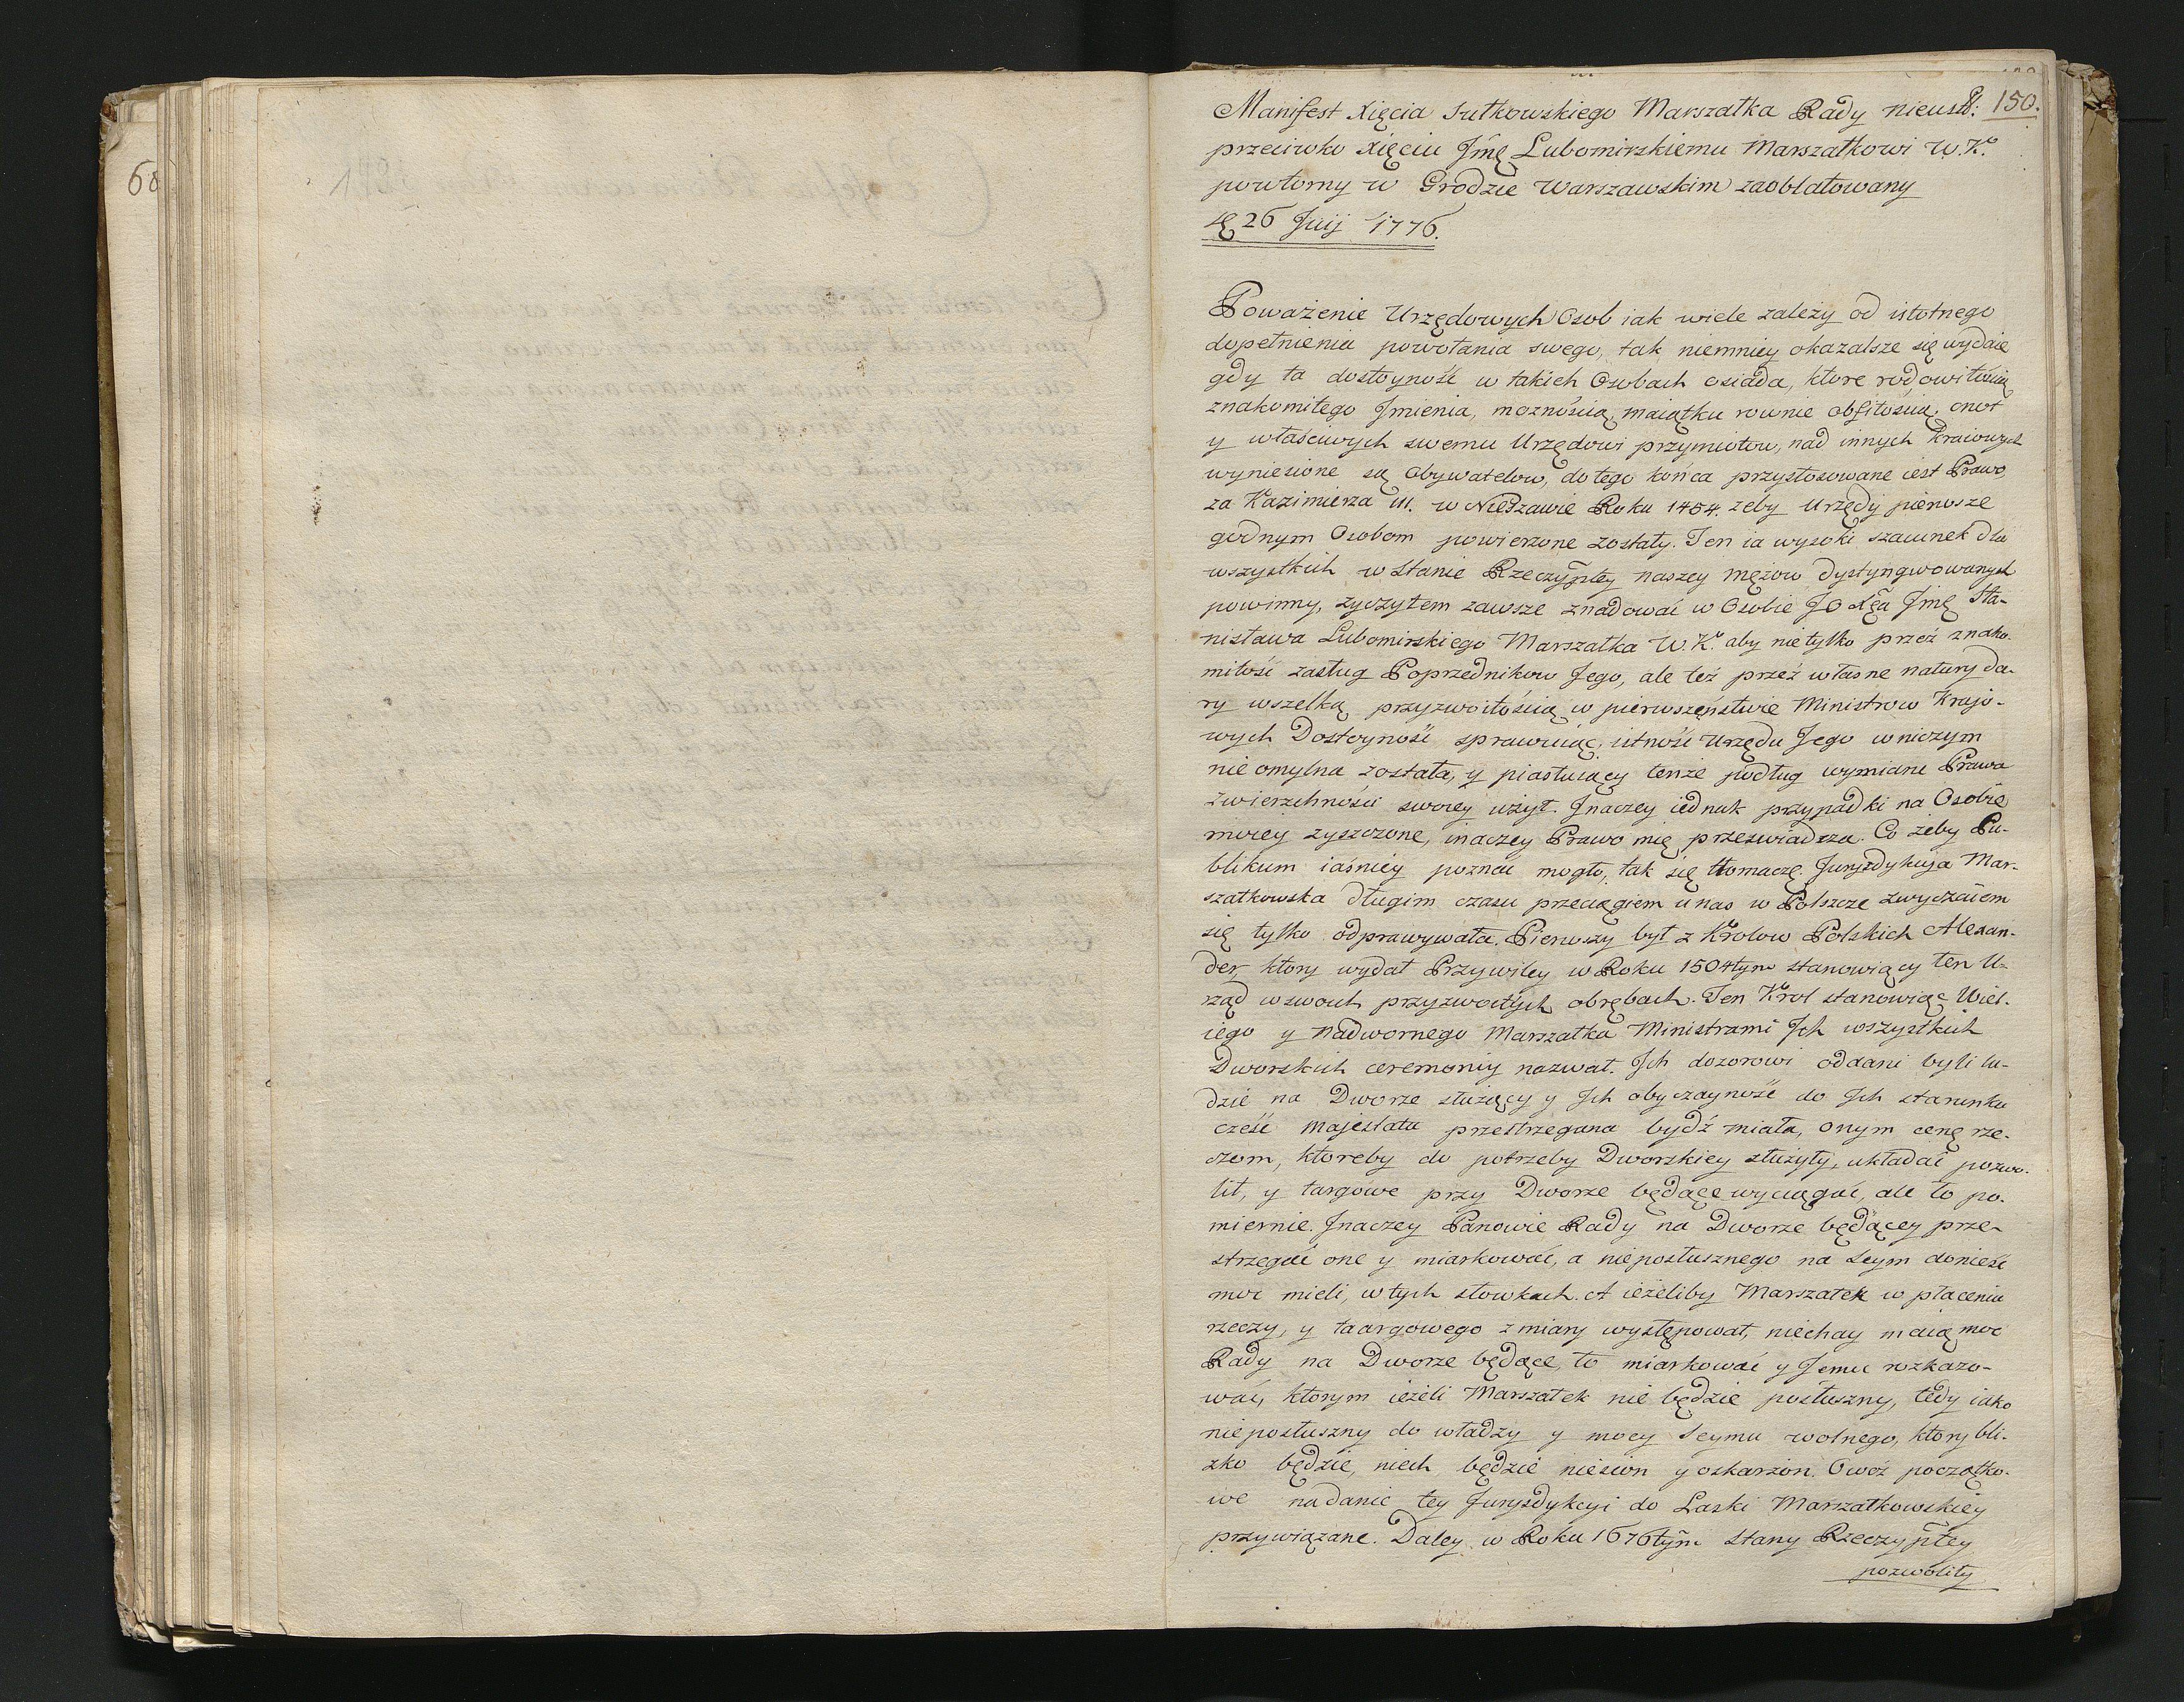 68
Manifest Xięcia Sułkowskiego Marszałka Rady nieust: 150.
przeciwko Xięciu Jmę Lubomirskiemu Marszałkowi W. K.
powtorny w Grodzie Warszawskim zaoblatowany
26 1776.
Poważenie Urzędowych Osob iak wiele zależy od istotnego
dopełnienia powołania swego, tak niemniey okazalsze się wydaie
gdy ta dostoyność w takich Osobach osiada, ktore rodowitością
znakomitego Jmienia, możnością maiątku rownie obfitością cnot
y właściwych swemu Urzędowi przymiotow, nad innych Kraiowych
wyniesione są Obywatelow, do tego końca przystosowane iest Prawo
za Kazimierza III. w Nieszawie Roku 1454. żeby Urzędy pierwsze
godnym Osobom powierzone zostały. Ten ia wysoki szacunek dla
wszystkich w Stanie Rzeczyptey naszey mężow dystyngwowanych
powinny, życzyłem zawsze znadować w Osobie JO Xęa Jmę Sta-
nisława Lubomirskiego Marszałka W. K. aby nie tylko przez znako-
mitość zasług Poprzednikow Jego, ale też przez własne natury da-
ry wszelką przyzwoitością w pierwszeństwie Ministrow Krajo-
wych Dostoyność sprawuiąc, istność Urzędu Jego w niczym
nie omylna została, y piastuiący tenże podług wymiaru Prawa
zwierzchności swoiey użył. Jnaczey iednak przypadki na Osobie
moiey zyszczone, inaczey Prawo mię przeswiadcza. Co żeby Pu-
blikum iaśniey poznać mogło, tak się tłomaczę. Juryzdykcya Mar-
szałkowska długim czasu przeciągiem u nas w Polszcze zwyczaiem
się tylko odprawywała. Pierwszy był z Krolow Polskich Alexan-
der, ktory wydał Przywiley w Roku 1504tym stanowiący ten U-
rząd w swoich przyzwoitych obrębach. Ten Krol stanowiąc Wiel-
iego y Nadwornego Marszałka Ministrami Jch wszystkich
Dworskich ceremoniy nazwał. Jch dozorowi oddani byli lu-
dzie na Dworze służący y Jch obyczayność do Jch starunku
cześć Majestatu przestrzegana bydź miała, onym cenę rze-
czom, ktoreby do potrzeby Dworskiey służyły, układać pozwo-
lił, y targowe przy Dworze będące wyciągać, ale to po-
miernie. Jnaczey Panowie Rady na Dworze będącey prze-
strzegać one y miarkować, a nieposłusznego na Seym donieść
moc mieli, w tych słowkach. A ieżeliby Marszałek w płaceniu
rzeczy, y taargowego z miary występował, niechay maią moc
Rady na Dworze będące, to miarkować y Jemu rozkazo-
wać, ktorym ieżeli Marszałek nie będzie posłuszny, tedy iako
nieposłuszny do władzy y mocy Seymu wolnego, ktory bli-
zko będzie, niech będzie niesion y oskarżon. Owoż początko-
we nadanie tey Juryzdykcyi do Laski Marszałkowskiey
przywiązane. Daley w Roku 1676tym Stany Rzeczyptey
pozwoliły